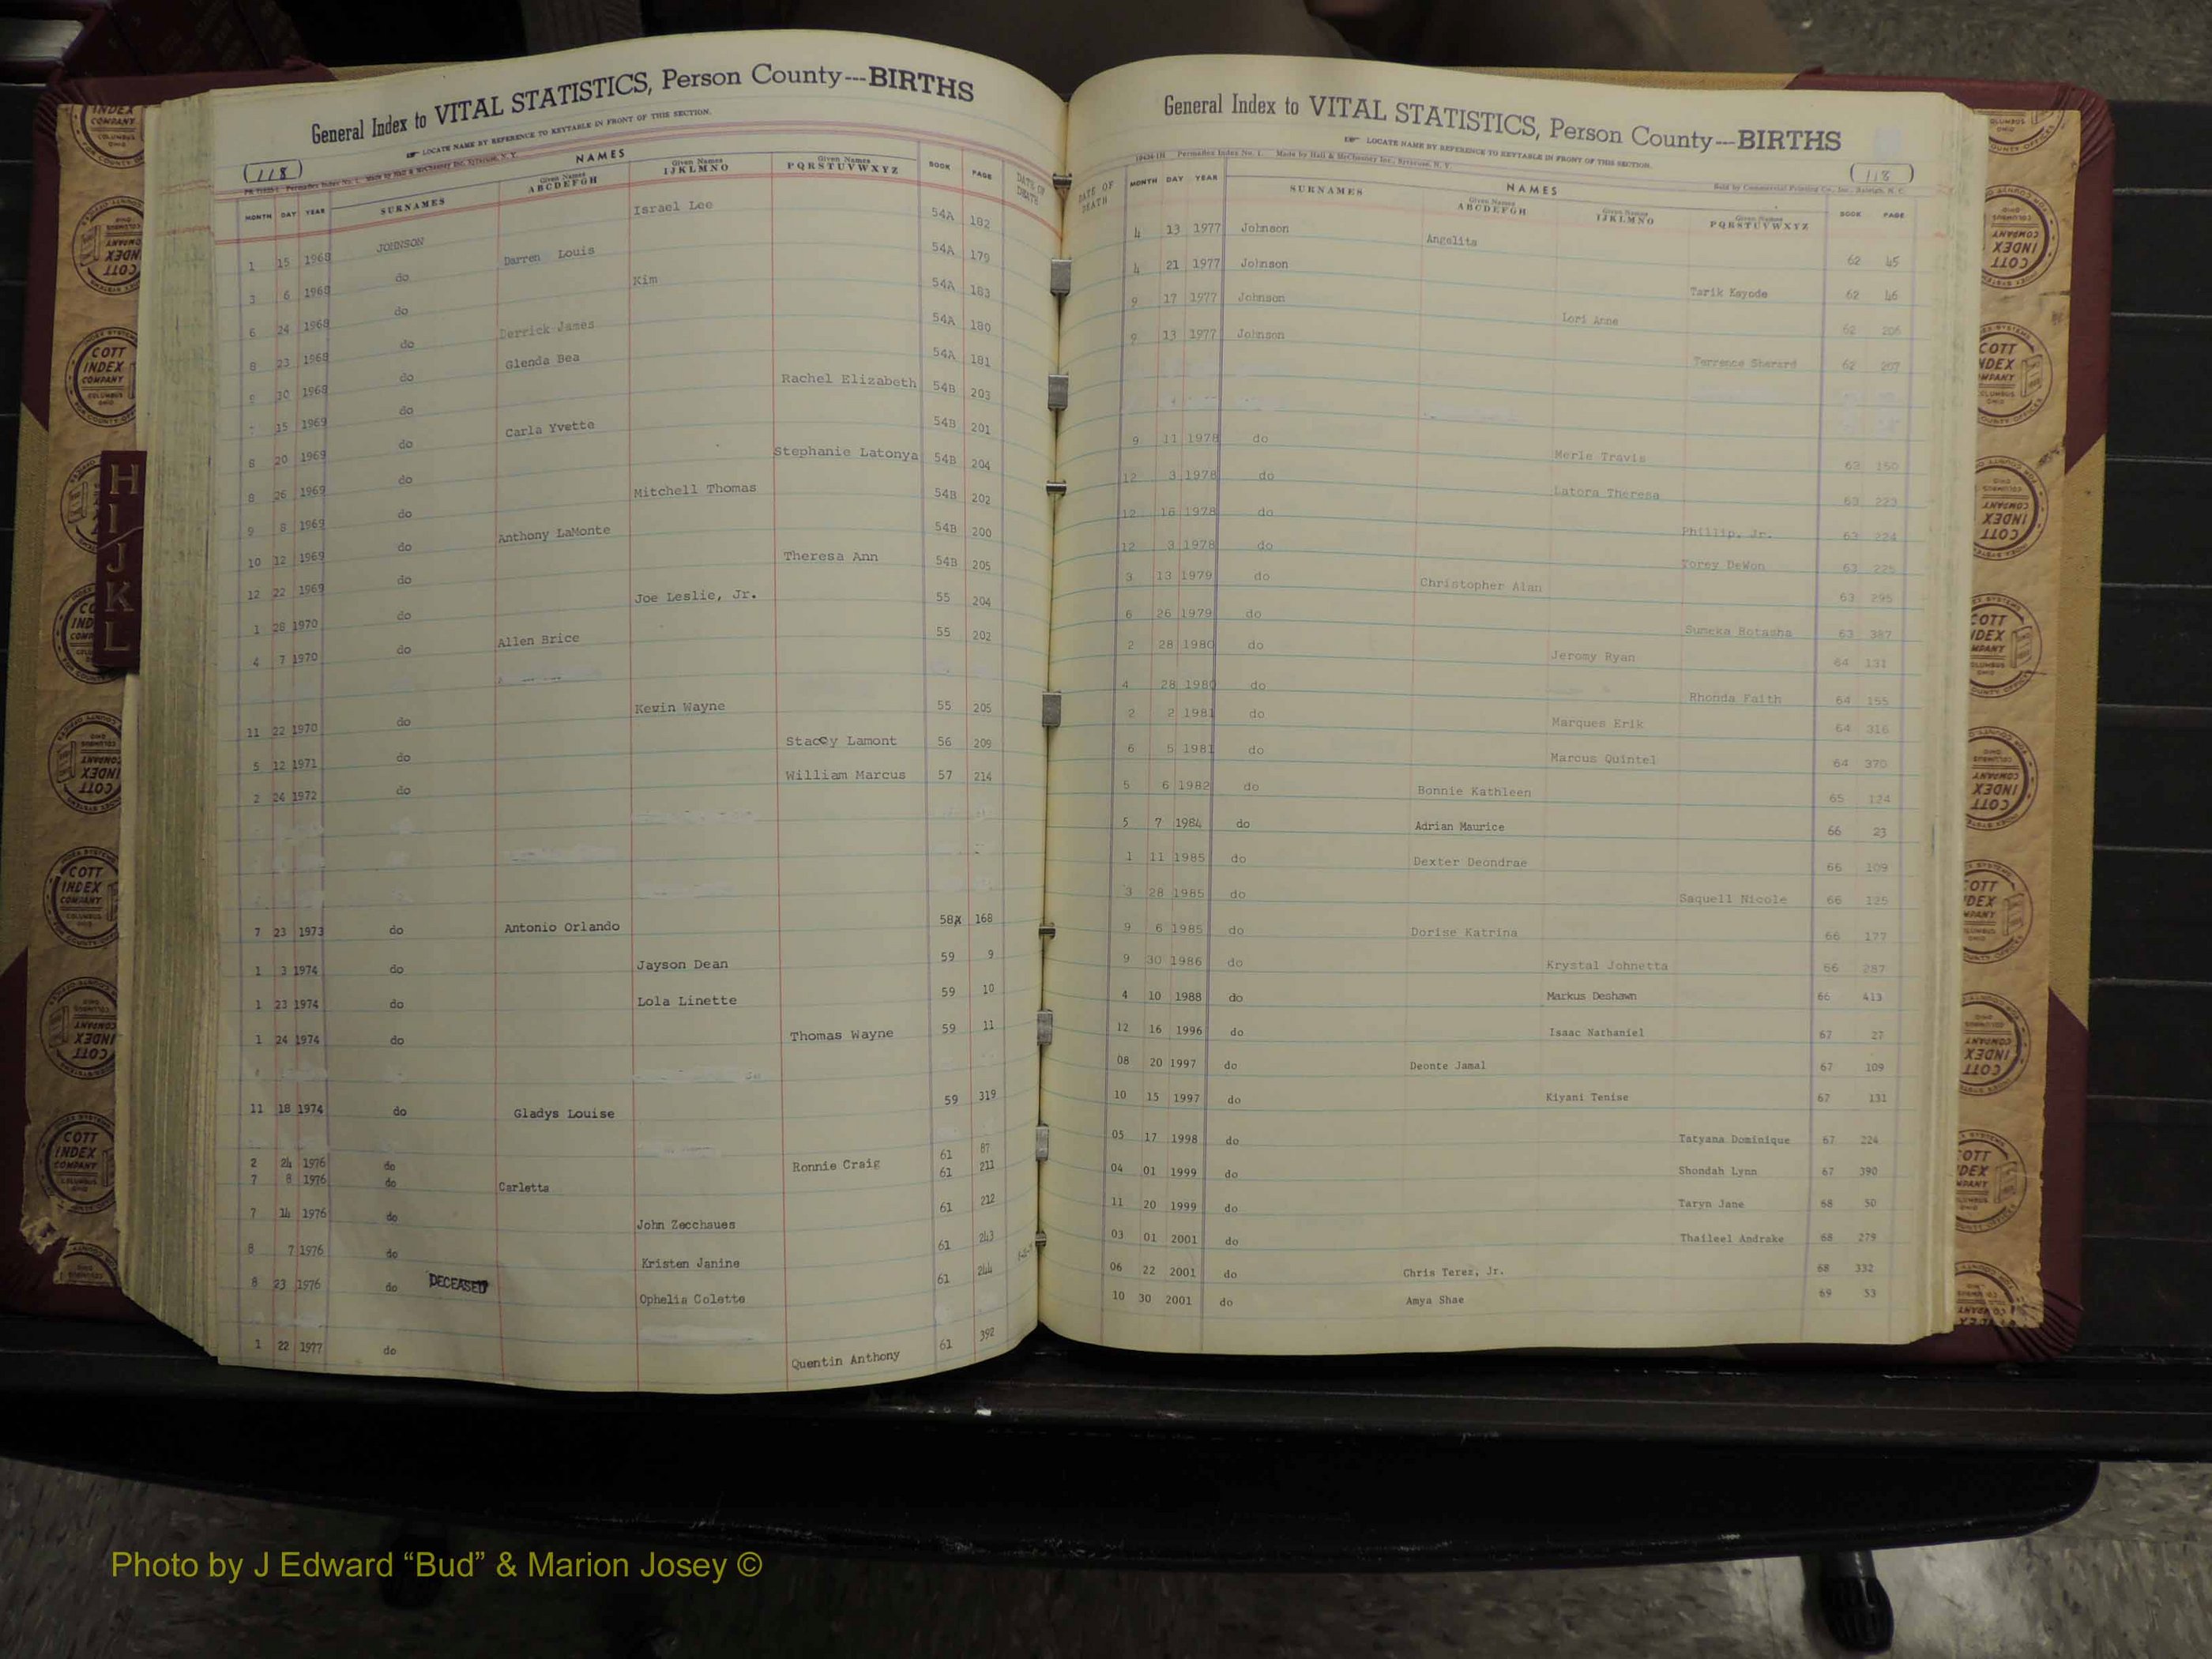 General Index to VITAL STATISTICS, Person County---BIRTHS
LOCATE NAME BY REFERENCE TO KEYTABLE IN FRONT OF THIS SECTION.
(118)
NAMES
MONTH DAY YEAR SURNAMES Given Names ABCDEFGH Given Names IJKLMNO Given Names PQRSTUVWXYZ BOOK PAGE DATE OF DEATH
1 15 1968 JOHNSON Israel Lee 54A 182
3 6 1968 do Darren Louis 54A 179
6 24 1968 do Kim 54A 183
8 23 1968 do Derrick James 54A 180
30 1968 do Glenda Bea 54A 181
15 1969 do Rachel Elizabeth 54B 203
20 1969 do Carla Yvette 54B 201
8 26 1969 do Stephanie Latonya 54B 204
9 8 1969 do Mitchell Thomas 54B 202
10 12 1969 do Anthony LaMonte 54B 200
12 22 1969 do Theresa Ann 54B 205
1 28 1970 do Joe Leslie, Jr. 55 204
4 7 1970 do Allen Brice 55 202
11 22 1970 do Kevin Wayne 55 205
5 12 1971 do Stacey Lamont 56 209
2 24 1972 do William Marcus 57 214
7 23 1973 do Antonio Orlando 58A 168
1 3 1974 do Jayson Dean 59 9
1 23 1974 do Lola Linette 59 10
1 24 1974 do Thomas Wayne 59 11
11 18 1974 do Gladys Louise 59 319
2 24 1976 do Ronnie Craig 61 87
7 8 1976 do Carletta 61 211
7 14 1976 do John Zecchaues 61 212
8 7 1976 do Kristen Janine 61 243
8 23 1976 do DECEASED Ophelia Colette 61 244
1 22 1977 do Quentin Anthony 61 392
General Index to VITAL STATISTICS, Person County---BIRTHS
LOCATE NAME BY REFERENCE TO KEYTABLE IN FRONT OF THIS SECTION.
Permadex Index No. 1. Made by Hall & McChesney Inc., Syracuse, N. Y.
Sold by Commercial Printing Co., Inc., Raleigh, N. C.
(118)
NAMES
DATE OF DEATH MONTH DAY YEAR SURNAMES Given Names ABCDEFGH Given Names IJKLMNO Given Names PQRSTUVWXYZ BOOK PAGE
4 13 1977 Johnson Angelita 62 45
4 21 1977 Johnson Tarik Kayode 62 46
9 17 1977 Johnson Lori Anne 62 206
9 13 1977 Johnson Terrence Sherard 62 207
9 11 1978 do Merle Travis 63 150
12 3 1978 do Latora Theresa 63 223
12 16 1978 do Phillip, Jr. 63 224
12 3 1978 do Torey DeWon 63 225
3 13 1979 do Christopher Alan 63 295
6 26 1979 do Sumeka Hotasha 63 387
2 28 1980 do Jeromy Ryan 64 131
4 28 1980 do Rhonda Faith 64 155
2 2 1981 do Marques Erik 64 316
6 5 1981 do Marcus Quintel 64 370
5 6 1982 do Bonnie Kathleen 65 124
5 7 1984 do Adrian Maurice 66 23
1 11 1985 do Dexter Deondrae 66 109
3 28 1985 do Saquell Nicole 66 125
9 6 1985 do Dorise Katrina 66 177
9 30 1986 do Krystal Johnetta 66 287
4 10 1988 do Markus Deshawn 66 413
12 16 1996 do Isaac Nathaniel 67 27
08 20 1997 do Deonte Jamal 67 109
10 15 1997 do Kiyani Tenise 67 131
05 17 1998 do Tatyana Dominique 67 224
04 01 1999 do Shondah Lynn 67 390
11 20 1999 do Taryn Jane 68 50
03 01 2001 do Thaileel Andrake 68 279
06 22 2001 do Chris Terez, Jr. 68 332
10 30 2001 do Amya Shae 69 53
H
I
J
K
L
COTT
INDEX
COMPANY
COLUMBUS
OHIO
Photo by J Edward “Bud” & Marion Josey ©